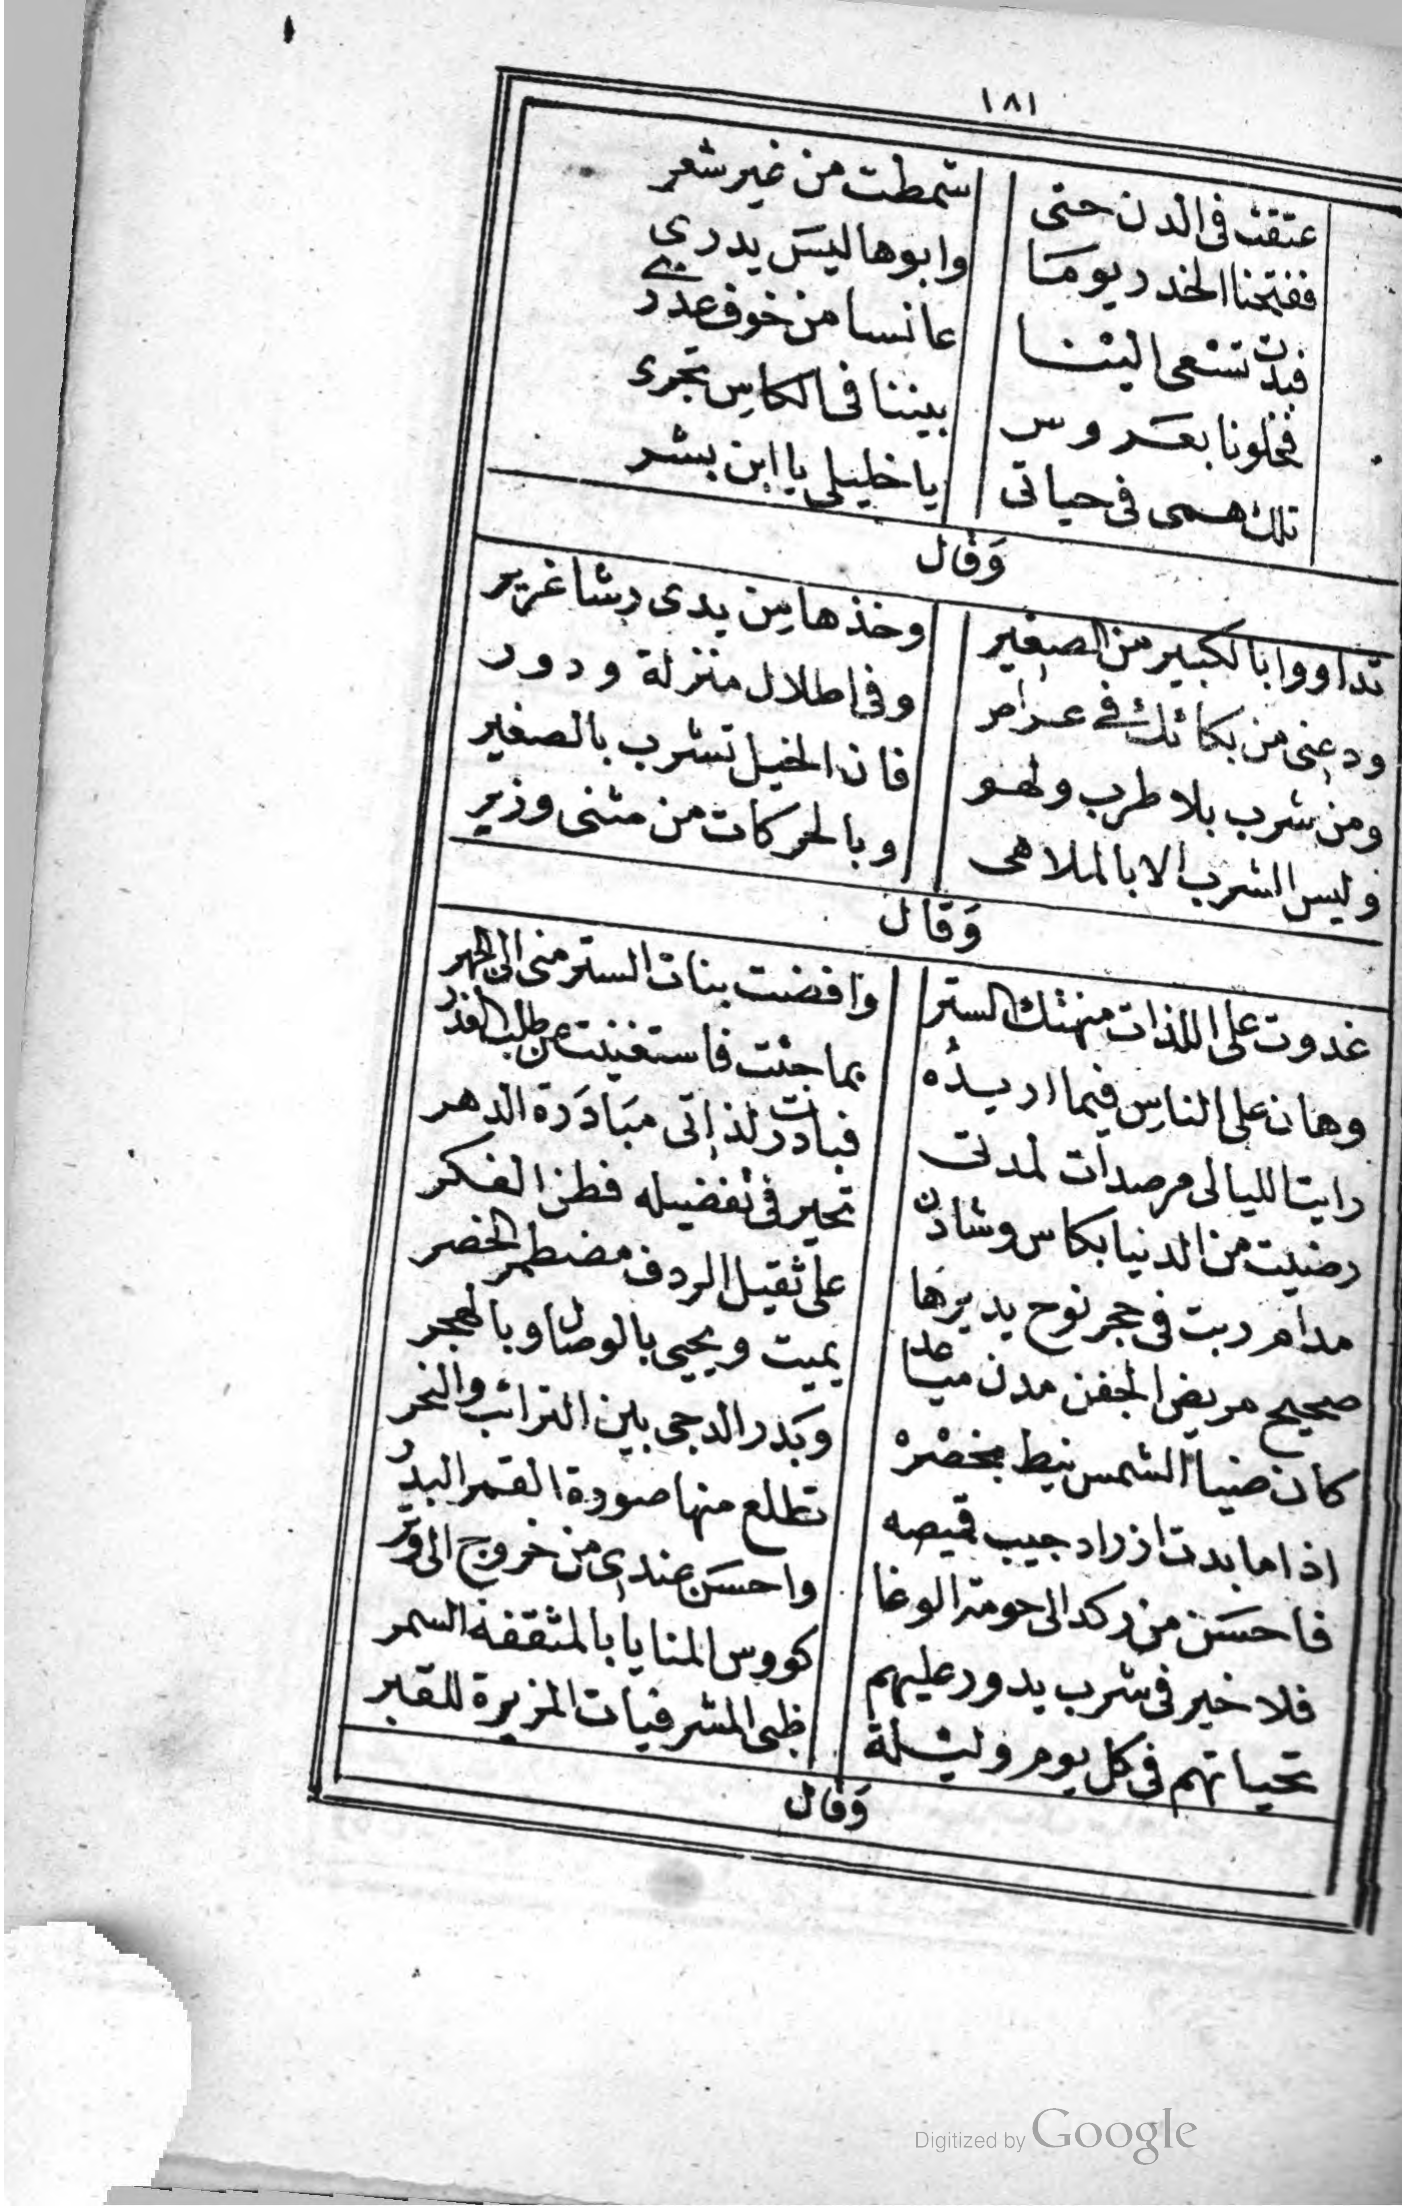 ١٨١
عتقت فى الدن حتى شمطت من غير شعر
ففتحنا الخدر يومًا وابوها ليسَ يدرى
فبدت تسْعى اليْنا عانسا من خوف عدر
فخلونا بعَروس بيننا فى الكاسِ تجرى
تلك همى فى حياتى يا خليلى يا ابن بشر
وَقال
تداووا بالكبير من الصغير وخذها مِن يدى رشا غرير
ودعنى من بكائك فى عرام وفى اطلال منزلة ودور
ومن شرب بلا طرب ولهو فان الخيل تشرب بالصغير
وليس الشرب الا بالملاهى وبالحركات من مثنى وزير
وَقال
غدوت على اللذات منهتك الستر وافضت بنات الستر منى الى الجهر
وهان على الناسِ فيما اريدُه بما جئت فاستغنيت عن طلب العذر
رايت الليالى مرصدات لمدتى فبادرت لذاتى مبَادَرة الدهر
رضيت من الدنيا بكاس وشادن تحير فى تفضيله فطن الفكر
مدام ربت فى حجر نوح يديرهَا على ثقيل الردف مضطمر الخصر
صحيح مريض الجفن مدن مباعد يميت ويحيى بالوصال وبالهجر
كان ضياَ الشمس نيط بخصْرهْ وبَدر الدجى بين الترائب والنحر
اذا ما بدت ازرار جيب قميصه تطلع منها صورة القمر البدر
فاحسَن من ركد الى حومة الوغا واحسَن عندى من خروج الى وتر
فلا خير فى شرب يدور عليهم كووس المنايا بالمثقفة السمر
تحياتهم فى كل يوم وليْلة ظبى المشرفيات المزيرة للقبر
وَقال
Digitized by Google